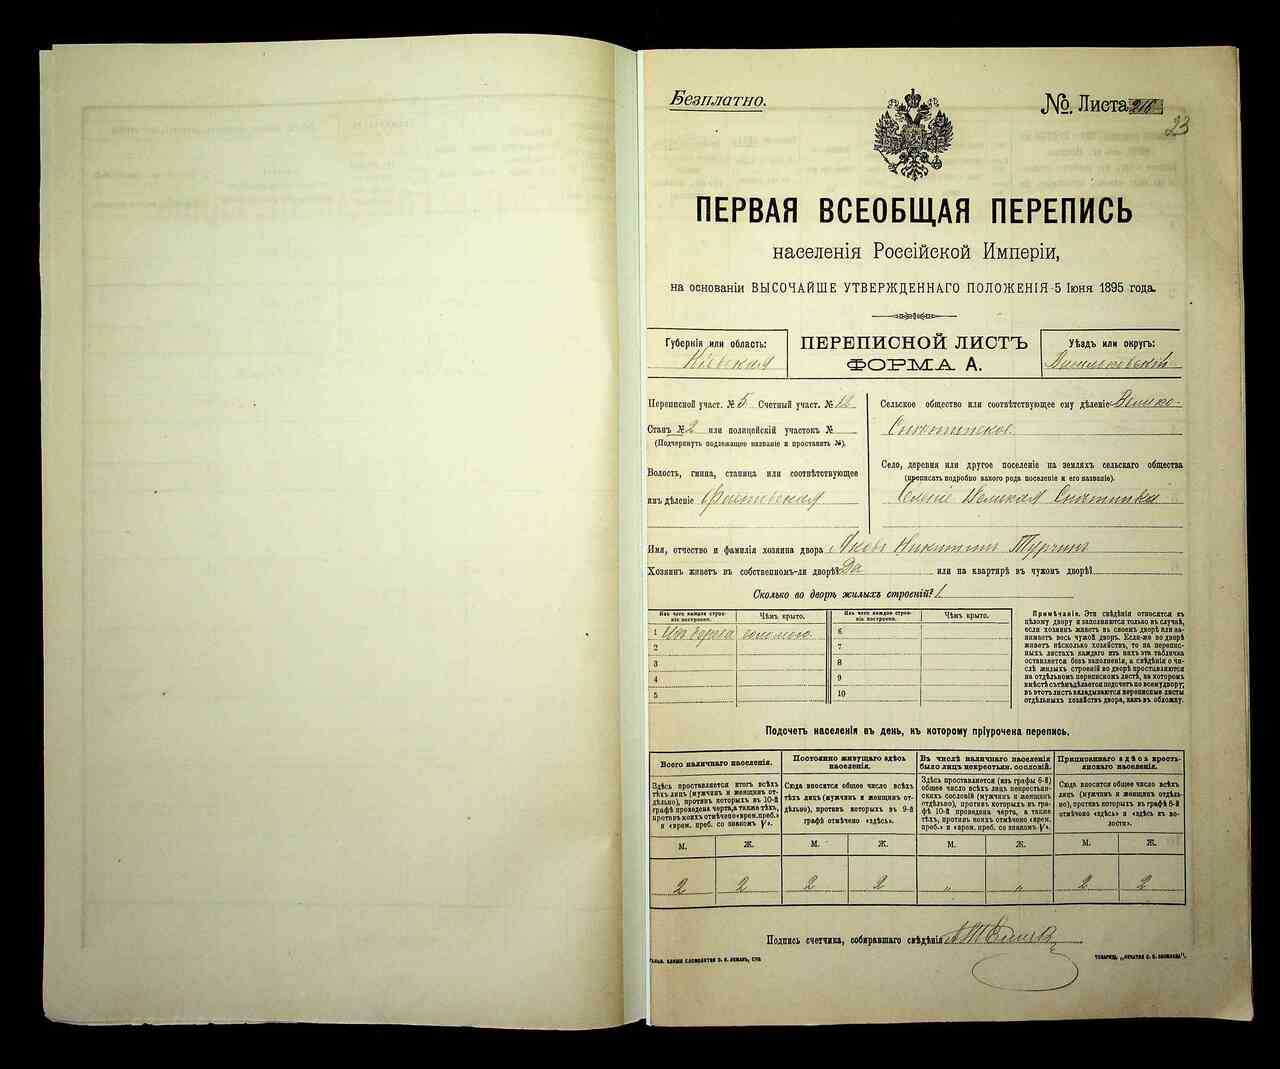 Безплатно.
№ Листа 216
23
ПЕРВАЯ ВСЕОБЩАЯ ПЕРЕПИСЬ
населенія Россійской Имперіи,
на основаніи ВЫСОЧАЙШЕ УТВЕРЖДЕННАГО ПОЛОЖЕНІЯ 5 Іюня 1895 года.
Губернія или область:
Кіевская
ПЕРЕПИСНОЙ ЛИСТЪ
ФОРМА А.
Уѣздъ или округъ:
Васильковскій
Переписной участ. № 5 Счетный участ. № 12
Станъ № 2 или полицейскій участокъ №
(Подчеркнуть подлежащее названіе и проставить №).
Волость, гмина, станица или соотвѣтствующее
имъ дѣленіе Фастовская
Сельское общество или соотвѣтствующее ему дѣленіе Велико-
Снѣтинское
Село, деревня или другое поселеніе на земляхъ сельскаго общества
(прописать подробно какого рода поселеніе и его названіе).
Селеніе Великая Снѣтинка
Имя, отчество и фамилія хозяина двора Яковъ Никитинъ Турчинъ
Хозяинъ живетъ въ собственномъ-ли дворѣ? Да или на квартирѣ въ чужомъ дворѣ?
Сколько во дворѣ жилыхъ строеній? 1.
Изъ чего каждое строеніе построено.
Чѣмъ крыто.
Изъ чего каждое строеніе построено.
Чѣмъ крыто.
1 Изъ дерева соломою. 6
2 7
3 8
4 9
5 10
Примѣчаніе. Эти свѣдѣнія относятся къ
цѣлому двору и заполняются только въ случаѣ,
если хозяинъ живетъ въ своемъ дворѣ или за-
нимаетъ весь чужой дворъ. Если-же во дворѣ
живетъ нѣсколько хозяйствъ, то на перепис-
ныхъ листахъ каждаго изъ нихъ эта табличка
оставляется безъ заполненія, а свѣдѣнія о чи-
слѣ жилыхъ строеній во дворѣ проставляются
на отдѣльномъ переписномъ листѣ, на которомъ
вмѣстѣ съ тѣмъ дѣлается подсчетъ по всему двору;
въ этотъ листъ вкладываются переписные листы
отдѣльныхъ хозяйствъ двора, какъ въ обложку.
Подсчетъ населенія въ день, къ которому пріурочена перепись.
Всего наличнаго населенія.
Здѣсь проставляется итогъ всѣхъ
тѣхъ лицъ (мужчинъ и женщинъ от-
дѣльно), противъ которыхъ въ 10-й
графѣ проведена черта, а также тѣхъ,
противъ коихъ отмѣчено «врем. преб.»
и «врем. преб. со знакомъ V».
Постоянно живущаго здѣсь
населенія.
Сюда вносится общее число всѣхъ
тѣхъ лицъ (мужчинъ и женщинъ от-
дѣльно), противъ которыхъ въ 9-й
графѣ отмѣчено «здѣсь».
Въ числѣ наличнаго населенія
было лицъ некрестьян. сословій.
Здѣсь проставляется (изъ графы 6-й)
общее число всѣхъ лицъ некрестьян-
скихъ сословій (мужчинъ и женщинъ
отдѣльно), противъ которыхъ въ гра-
фѣ 10-й проведена черта, а также
тѣхъ, противъ коихъ отмѣчено «врем.
преб.» и «врем. преб. со знакомъ V».
Приписаннаго здѣсь кресть-
янскаго населенія.
Сюда вносится общее число всѣхъ
лицъ (мужчинъ и женщинъ отдѣль-
но), противъ которыхъ въ графѣ 8-й
отмѣчено «здѣсь» и «здѣсь къ во-
лости».
М. Ж. М. Ж. М. Ж. М. Ж.
2 2 2 2 „ „ 2 2
Подпись счетчика, собиравшаго свѣдѣнія